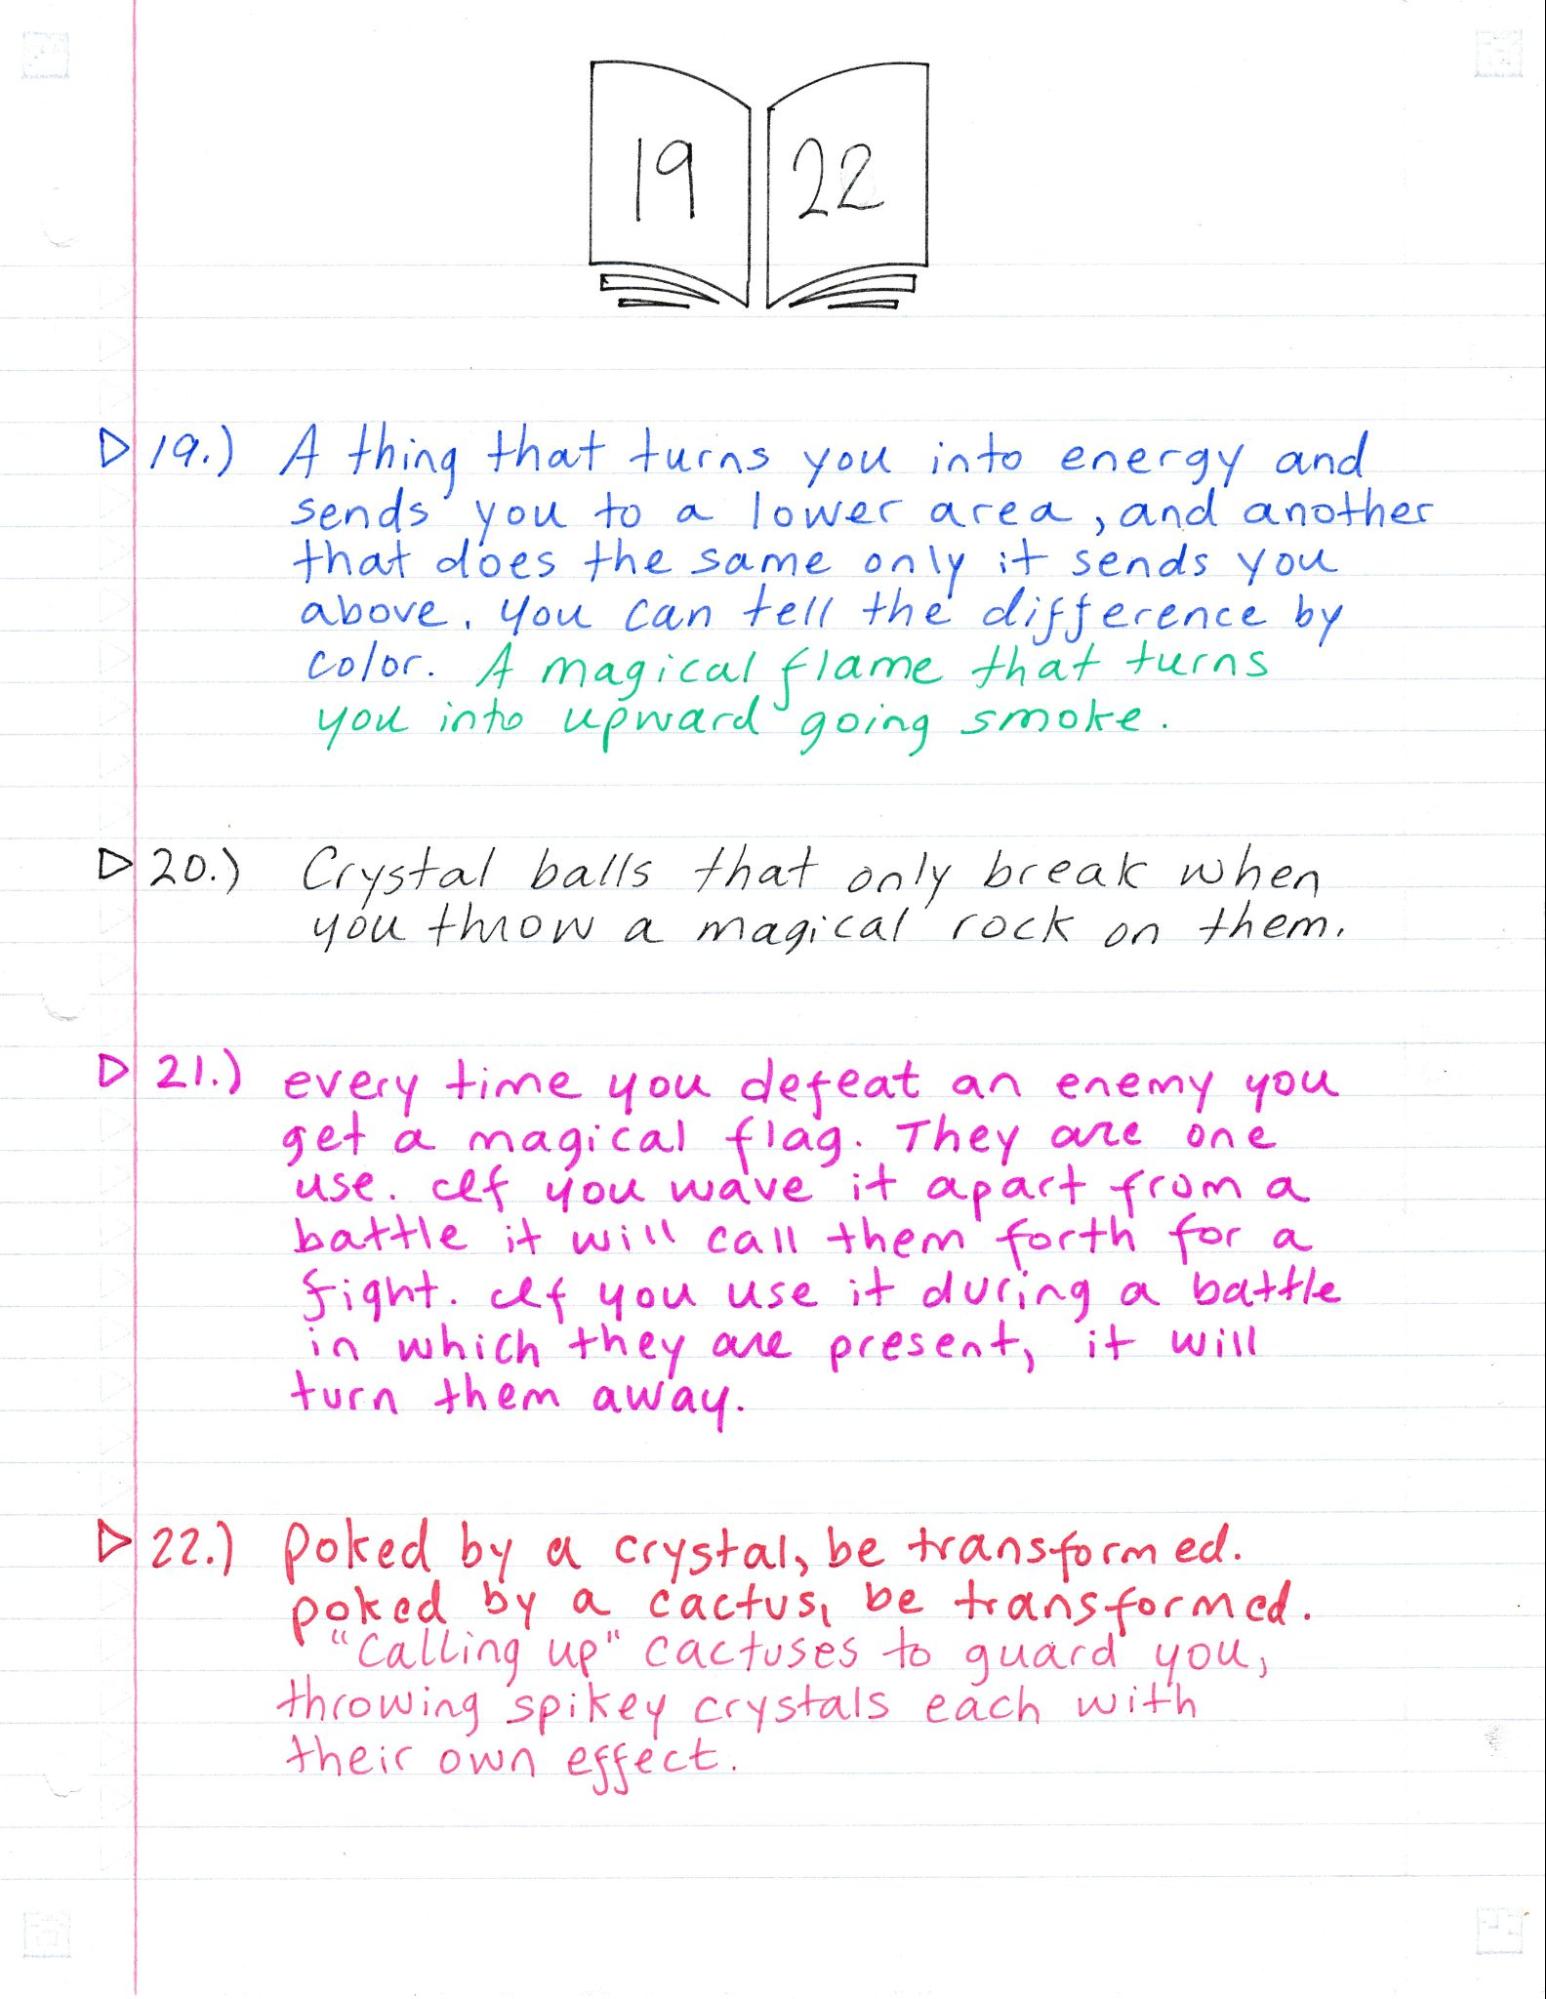 19 22
▷ 19.) A thing that turns you into energy and
sends you to a lower area, and another
that does the same only it sends you
above. You can tell the difference by
color. A magical flame that turns
you into upward going smoke.
▷ 20.) Crystal balls that only break when
you throw a magical rock on them.
▷ 21.) every time you defeat an enemy you
get a magical flag. They are one
use. If you wave it apart from a
battle it will call them forth for a
fight. If you use it during a battle
in which they are present, it will
turn them away.
▷ 22.) Poked by a crystal, be transformed.
poked by a cactus, be transformed.
"Calling up" cactuses to guard you,
throwing spikey crystals each with
their own effect.